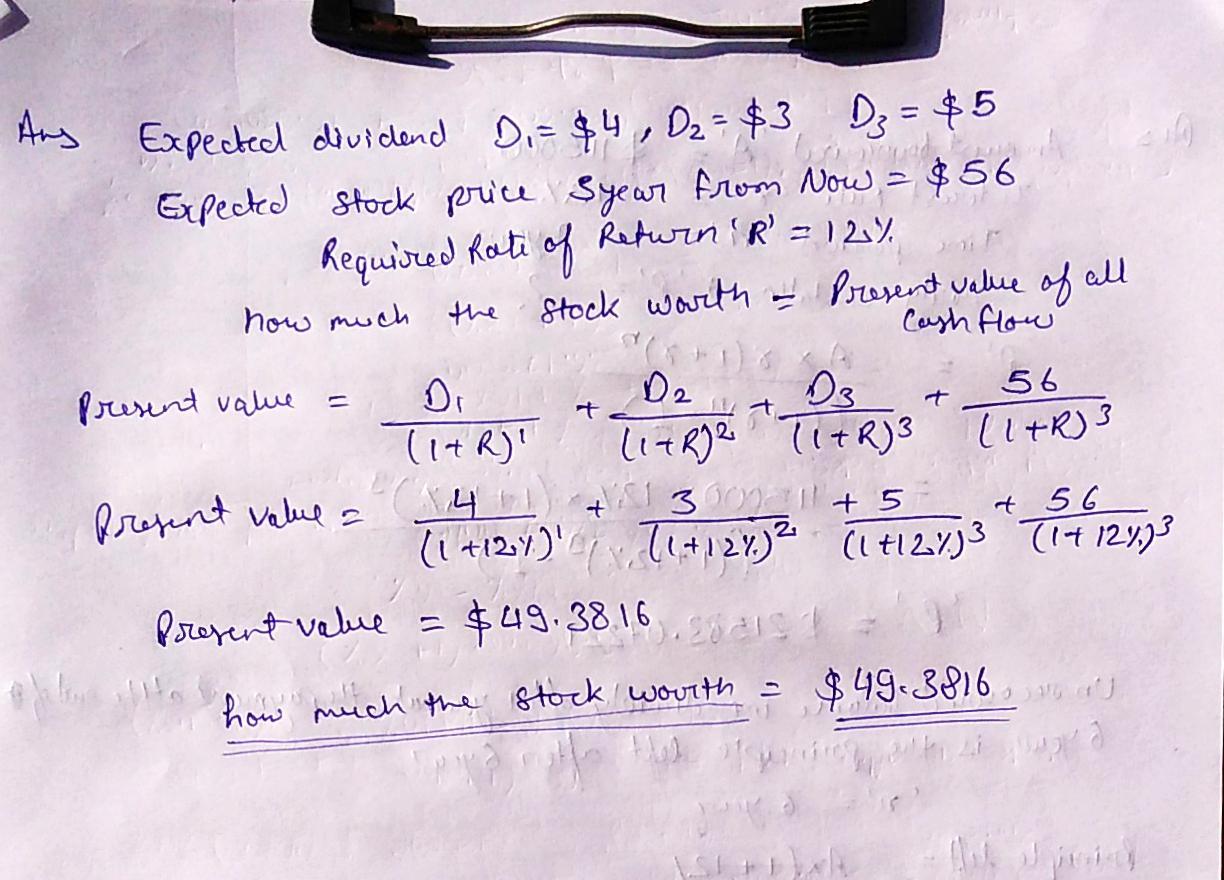 Ans Expected dividend D₁ = $4, D₂ = $3 D₃ = $5
Expected stock price 3year from Now = $56
Required Rate of Return 'R' = 12%
how much the stock worth = Present value of all
Cash flow
Present value = D₁/(1+R)¹ + D₂/(1+R)² + D₃/(1+R)³ + 56/(1+R)³
Present value = 4/(1+12%)¹ + 3/(1+12%)² + 5/(1+12%)³ + 56/(1+12%)³
Present value = $49.38.16
how much the stock worth = $49.3816